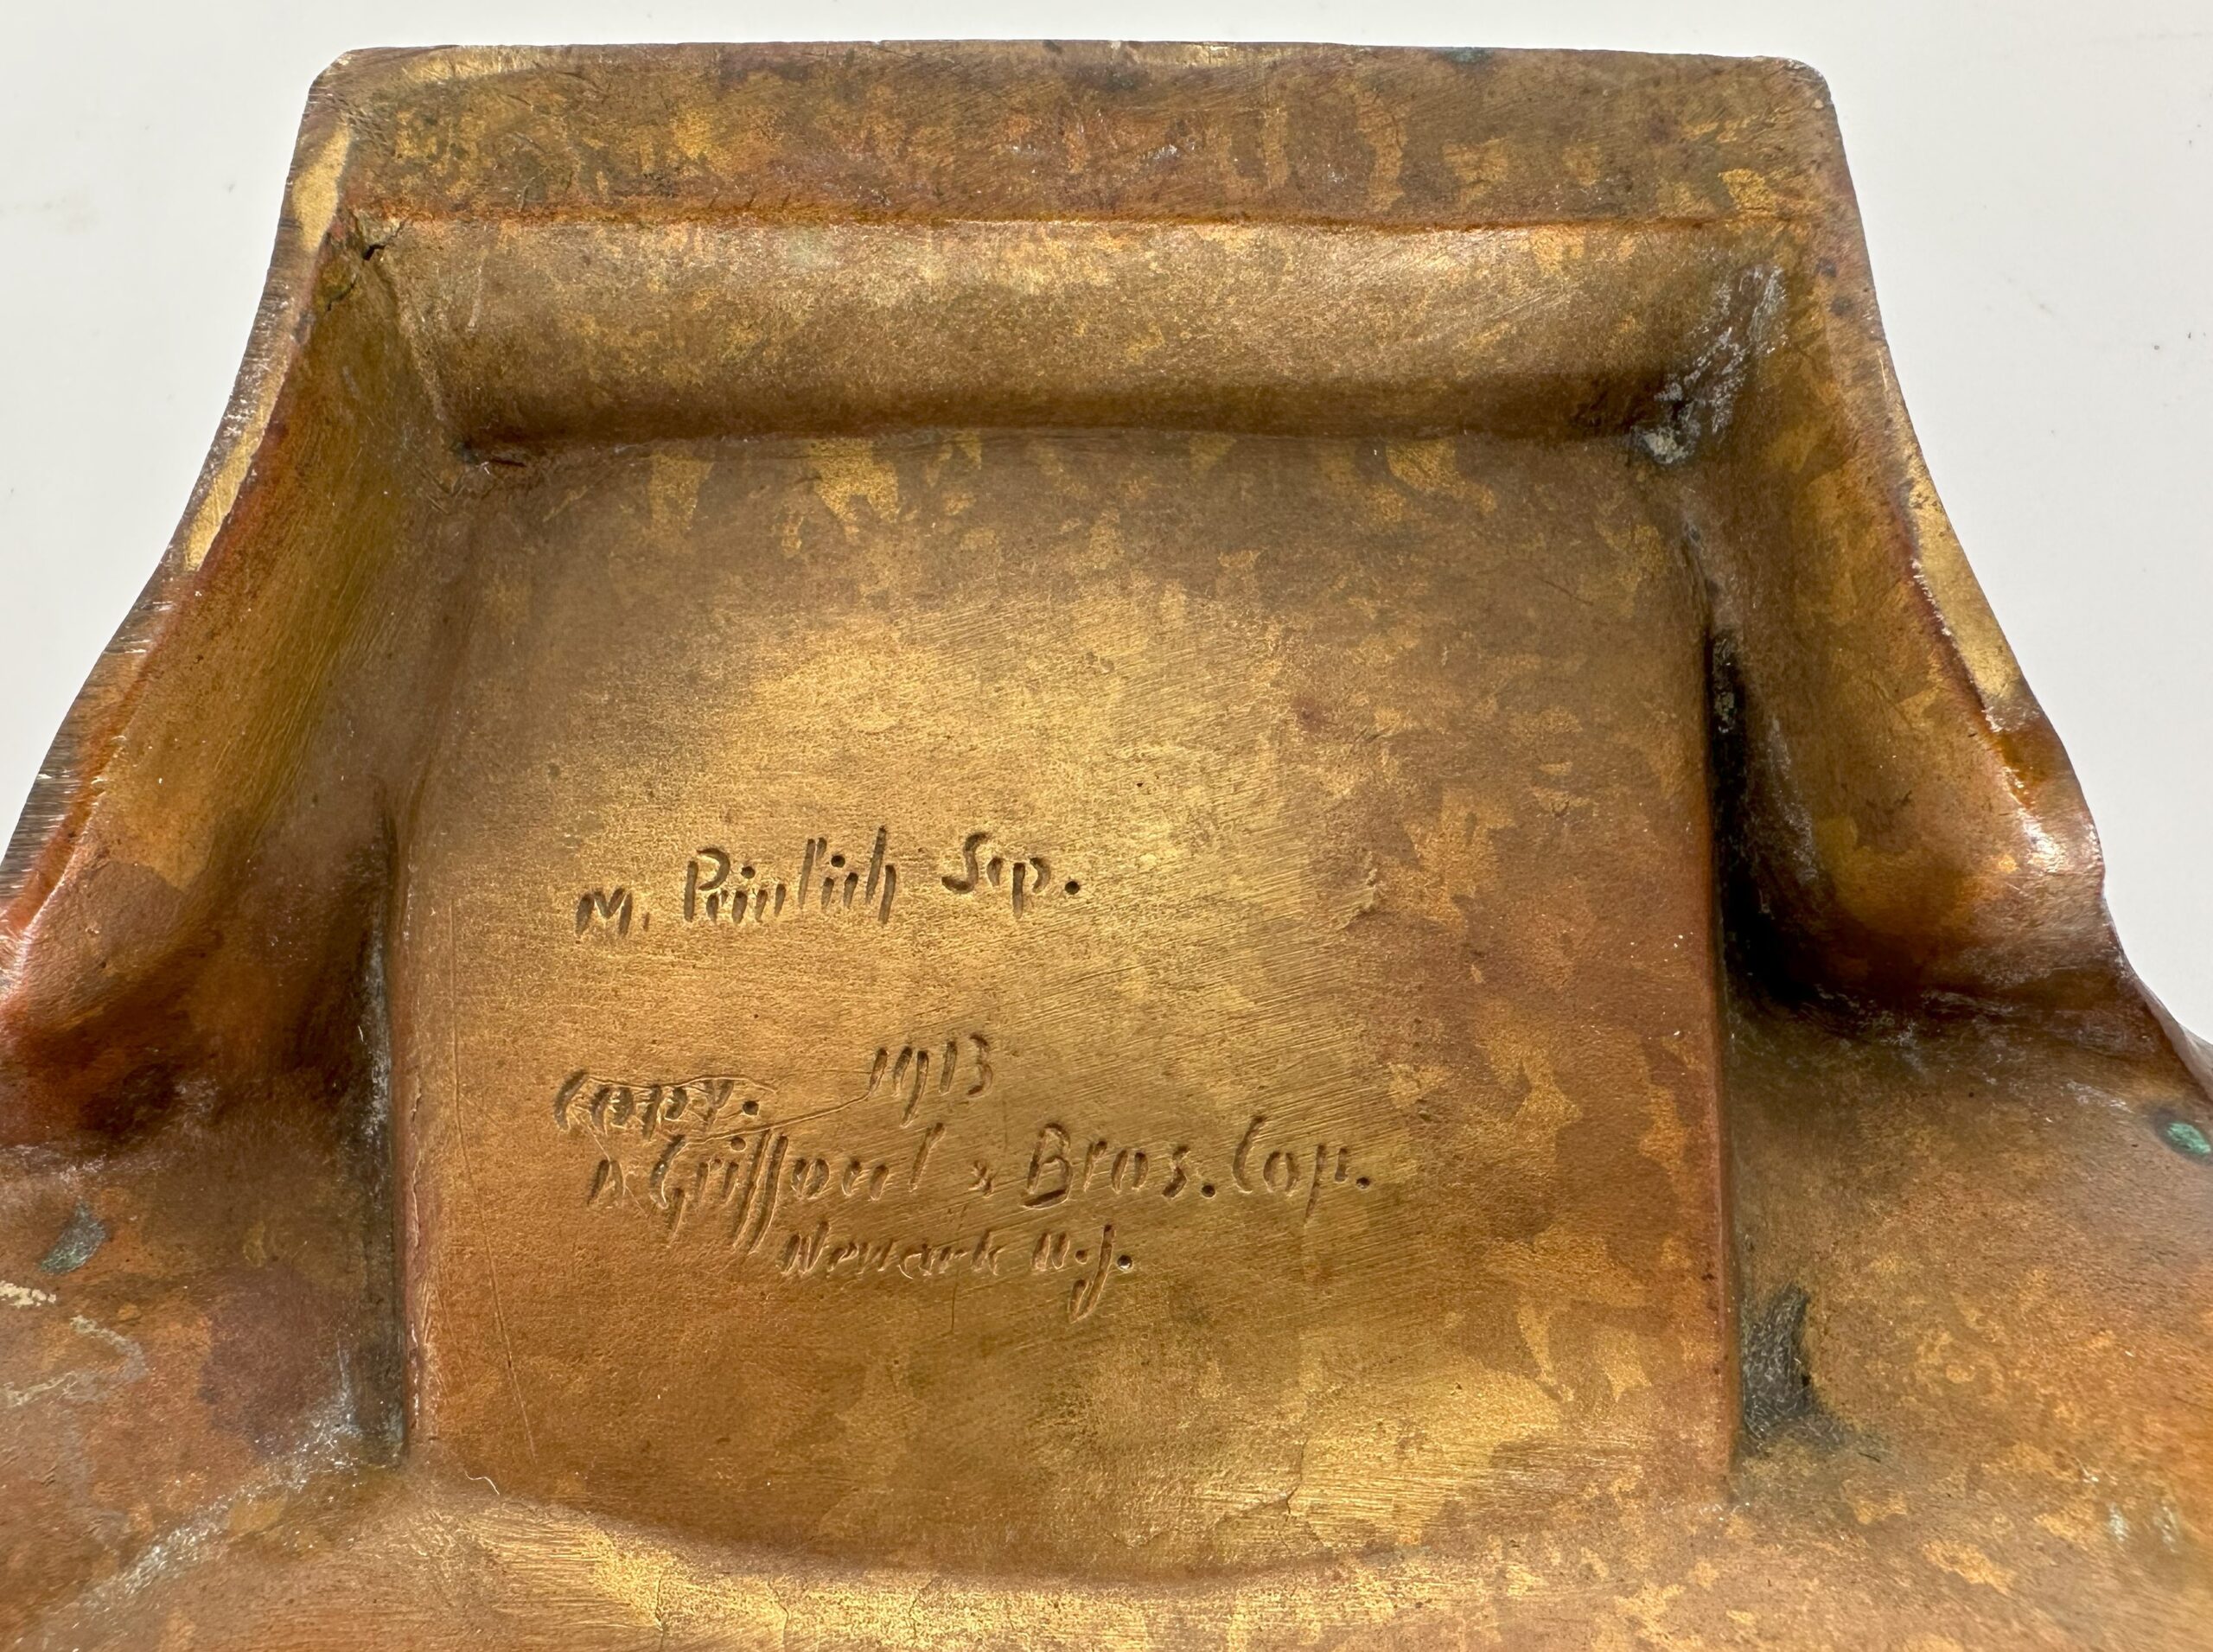 M. Peinlich Scp.
Copy. 1913
A. Griffoul & Bros. Cop.
Newark N.J.